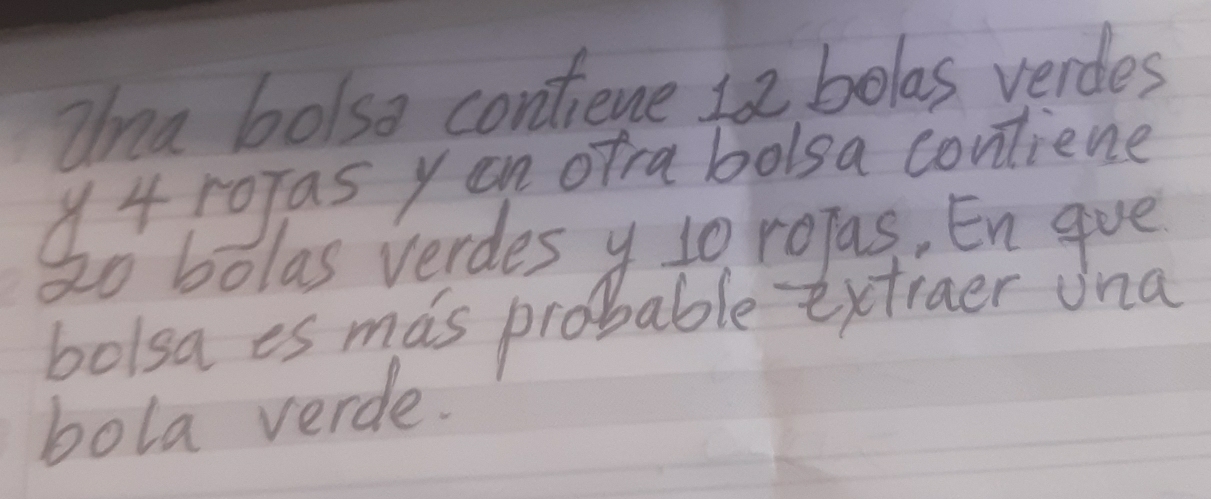 Una bolsa contiene 12 bolas verdes
y 4 rojas y en otra bolsa contiene
20 bolas verdes y 10 rojas. En que
bolsa es más probable extraer una
bola verde.